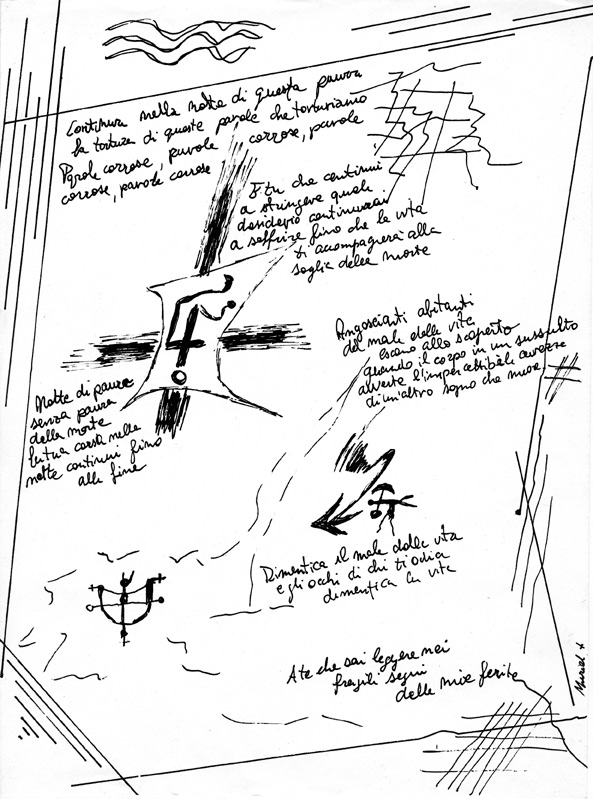 Continua nella notte di questa paura
la tortura di queste parole che torturiamo
Parole corrose, parole corrose, parole
corrose, parole corrose
E tu che continui
a stringere quale
desiderio continuerai
a soffrire fino che la vita
ti accompagnerà alla
soglia della morte
Angoscianti abitanti
del male della vita
escono allo scoperto
quando il corpo in un sussulto
avverte l'impercettibile
di un altro sogno che muore
Notte di paura
senza paura
della morte
la tua corsa nella
notte continui fino
alla fine
Dimentica il male della vita
e gli occhi di chi ti odia
dimentica la vita
A te che sai leggere nei
fragili segni
delle mie ferite
Muriel